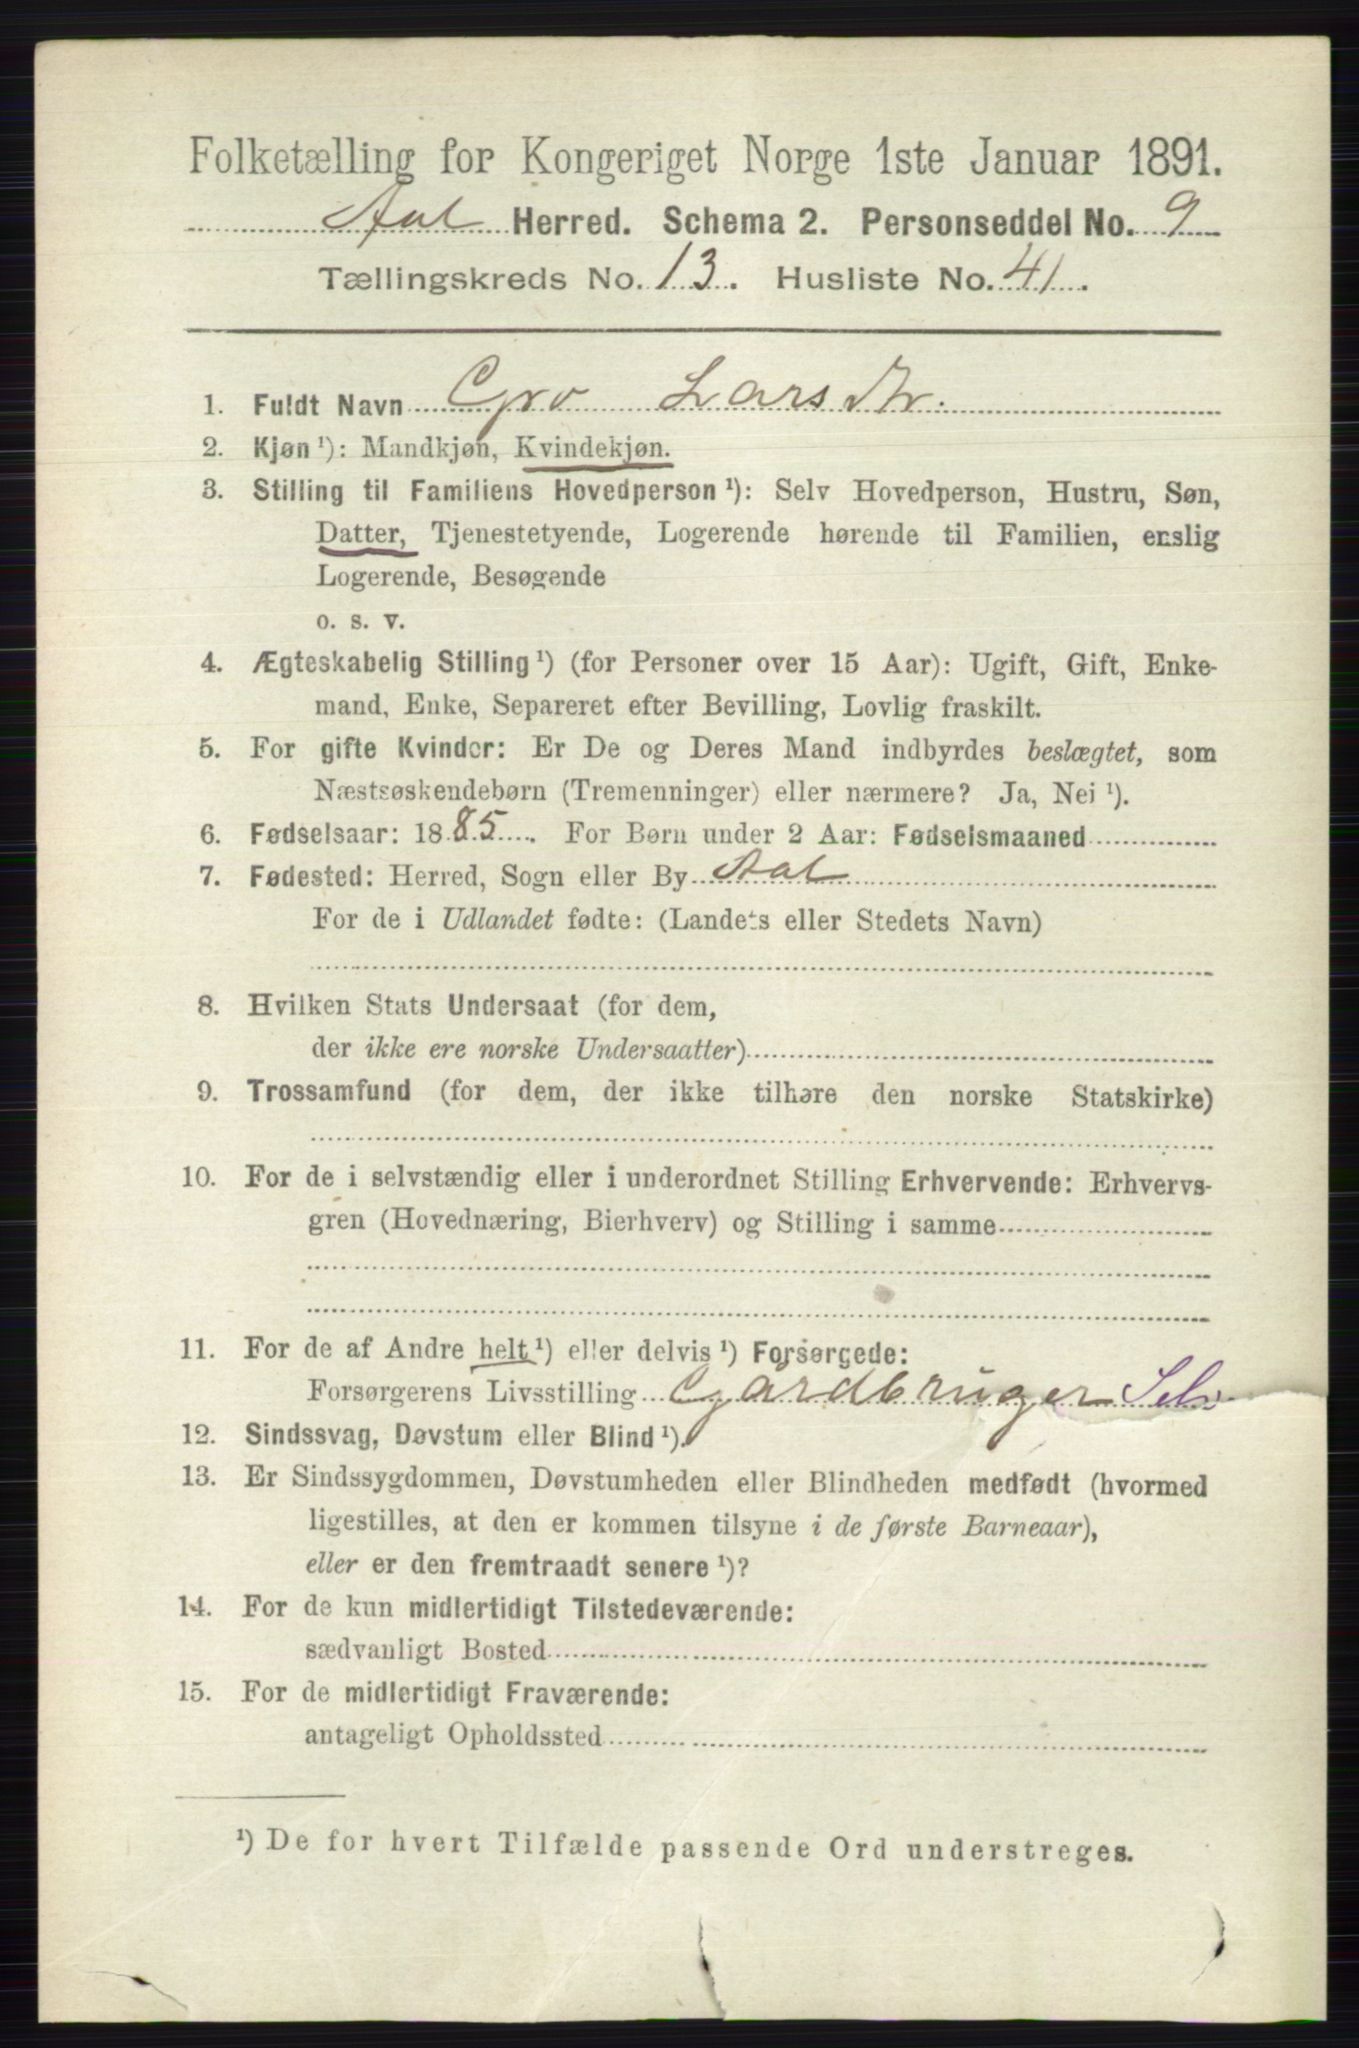 Folketælling for Kongeriget Norge 1ste Januar 1891.
Aal Herred. Schema 2. Personseddel No. 9
Tællingskreds No. 13. Husliste No. 41.
1. Fuldt Navn Gro Larsdtr.
2. Kjøn ¹): Mandkjøn, Kvindekjøn.
3. Stilling til Familiens Hovedperson ¹): Selv Hovedperson, Hustru, Søn,
Datter, Tjenestetyende, Logerende hørende til Familien, enslig
Logerende, Besøgende
o. s. v.
4. Ægteskabelig Stilling ¹) (for Personer over 15 Aar): Ugift, Gift, Enke-
mand, Enke, Separeret efter Bevilling, Lovlig fraskilt.
5. For gifte Kvinder: Er De og Deres Mand indbyrdes beslægtet, som
Næstsøskendebørn (Tremenninger) eller nærmere? Ja, Nei ¹).
6. Fødselsaar: 1885. For Børn under 2 Aar: Fødselsmaaned
7. Fødested: Herred, Sogn eller By Aal
For de i Udlandet fødte: (Landets eller Stedets Navn)
8. Hvilken Stats Undersaat (for dem,
der ikke ere norske Undersaatter)
9. Trossamfund (for dem, der ikke tilhøre den norske Statskirke)
10. For de i selvstændig eller i underordnet Stilling Erhvervende: Erhvervs-
gren (Hovednæring, Bierhverv) og Stilling i samme
11. For de af Andre helt ¹) eller delvis ¹) Forsørgede:
Forsørgerens Livsstilling Gårdbruger Selv
12. Sindssvag, Døvstum eller Blind ¹).
13. Er Sindssygdommen, Døvstumheden eller Blindheden medfødt (hvormed
ligestilles, at den er kommen tilsyne i de første Barneaar),
eller er den fremtraadt senere ¹)?
14. For de kun midlertidigt Tilstedeværende:
sædvanligt Bosted
15. For de midlertidigt Fraværende:
antageligt Opholdssted
¹) De for hvert Tilfælde passende Ord understreges.